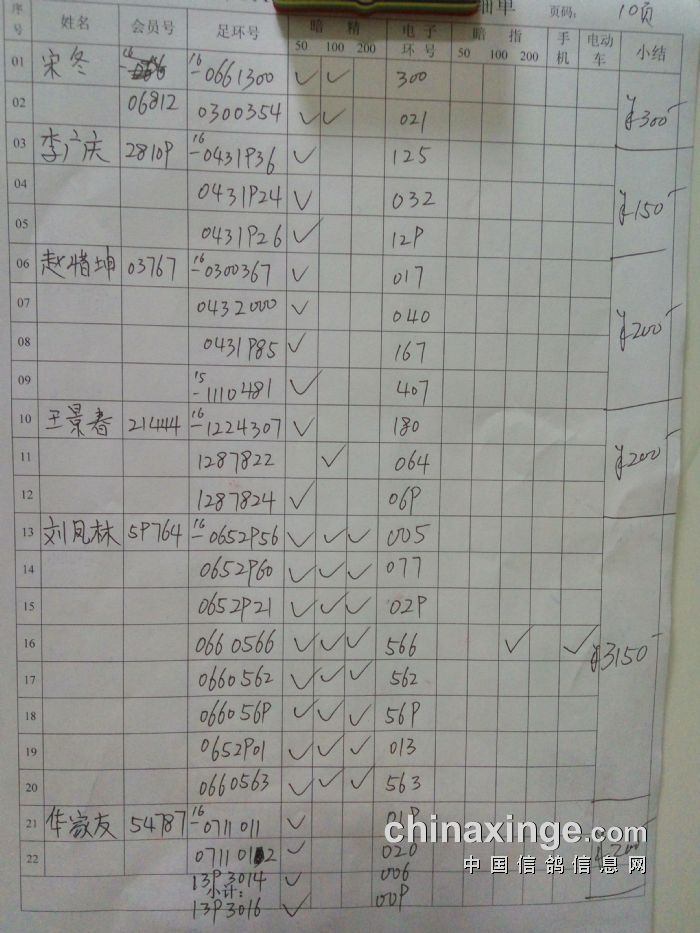 细单 页码: 10页
序号 姓名 会员号 足环号 暗精 50 100 200 电子环号 暗指 50 100 200 手机 电动车 小结
01 宋冬 16-0661300 ✓ ✓ 300
02 06812 0300354 ✓ ✓ 021 ¥300-
03 李广庆 2810P 16-0431P36 ✓ 125
04 0431P24 ✓ 032 ¥150-
05 0431P26 ✓ 12P
06 赵惜坤 03767 16-0300367 ✓ 017
07 0432000 ✓ 040 ¥200-
08 0431P85 ✓ 167
09 15-1110481 ✓ 407
10 王景春 21444 16-1224307 ✓ 180
11 1287822 ✓ 064 ¥200-
12 1287824 ✓ 06P
13 刘凤林 5P764 16-0652P56 ✓ ✓ ✓ 005
14 0652P60 ✓ ✓ ✓ 077
15 0652P21 ✓ ✓ ✓ 02P
16 0660566 ✓ ✓ ✓ 566 ✓ ✓ ¥3150-
17 0660562 ✓ ✓ ✓ 562
18 066056P ✓ ✓ ✓ 56P
19 0652P01 ✓ ✓ ✓ 013
20 0660563 ✓ ✓ ✓ 563
21 华家友 54787 16-0711011 ✓ 01P
chinaxinge.com
22 0711012 ✓ 020 ¥200-
中国信鸽信息网
13P3014 ✓ 006
小计:
13P3016 ✓ 00P